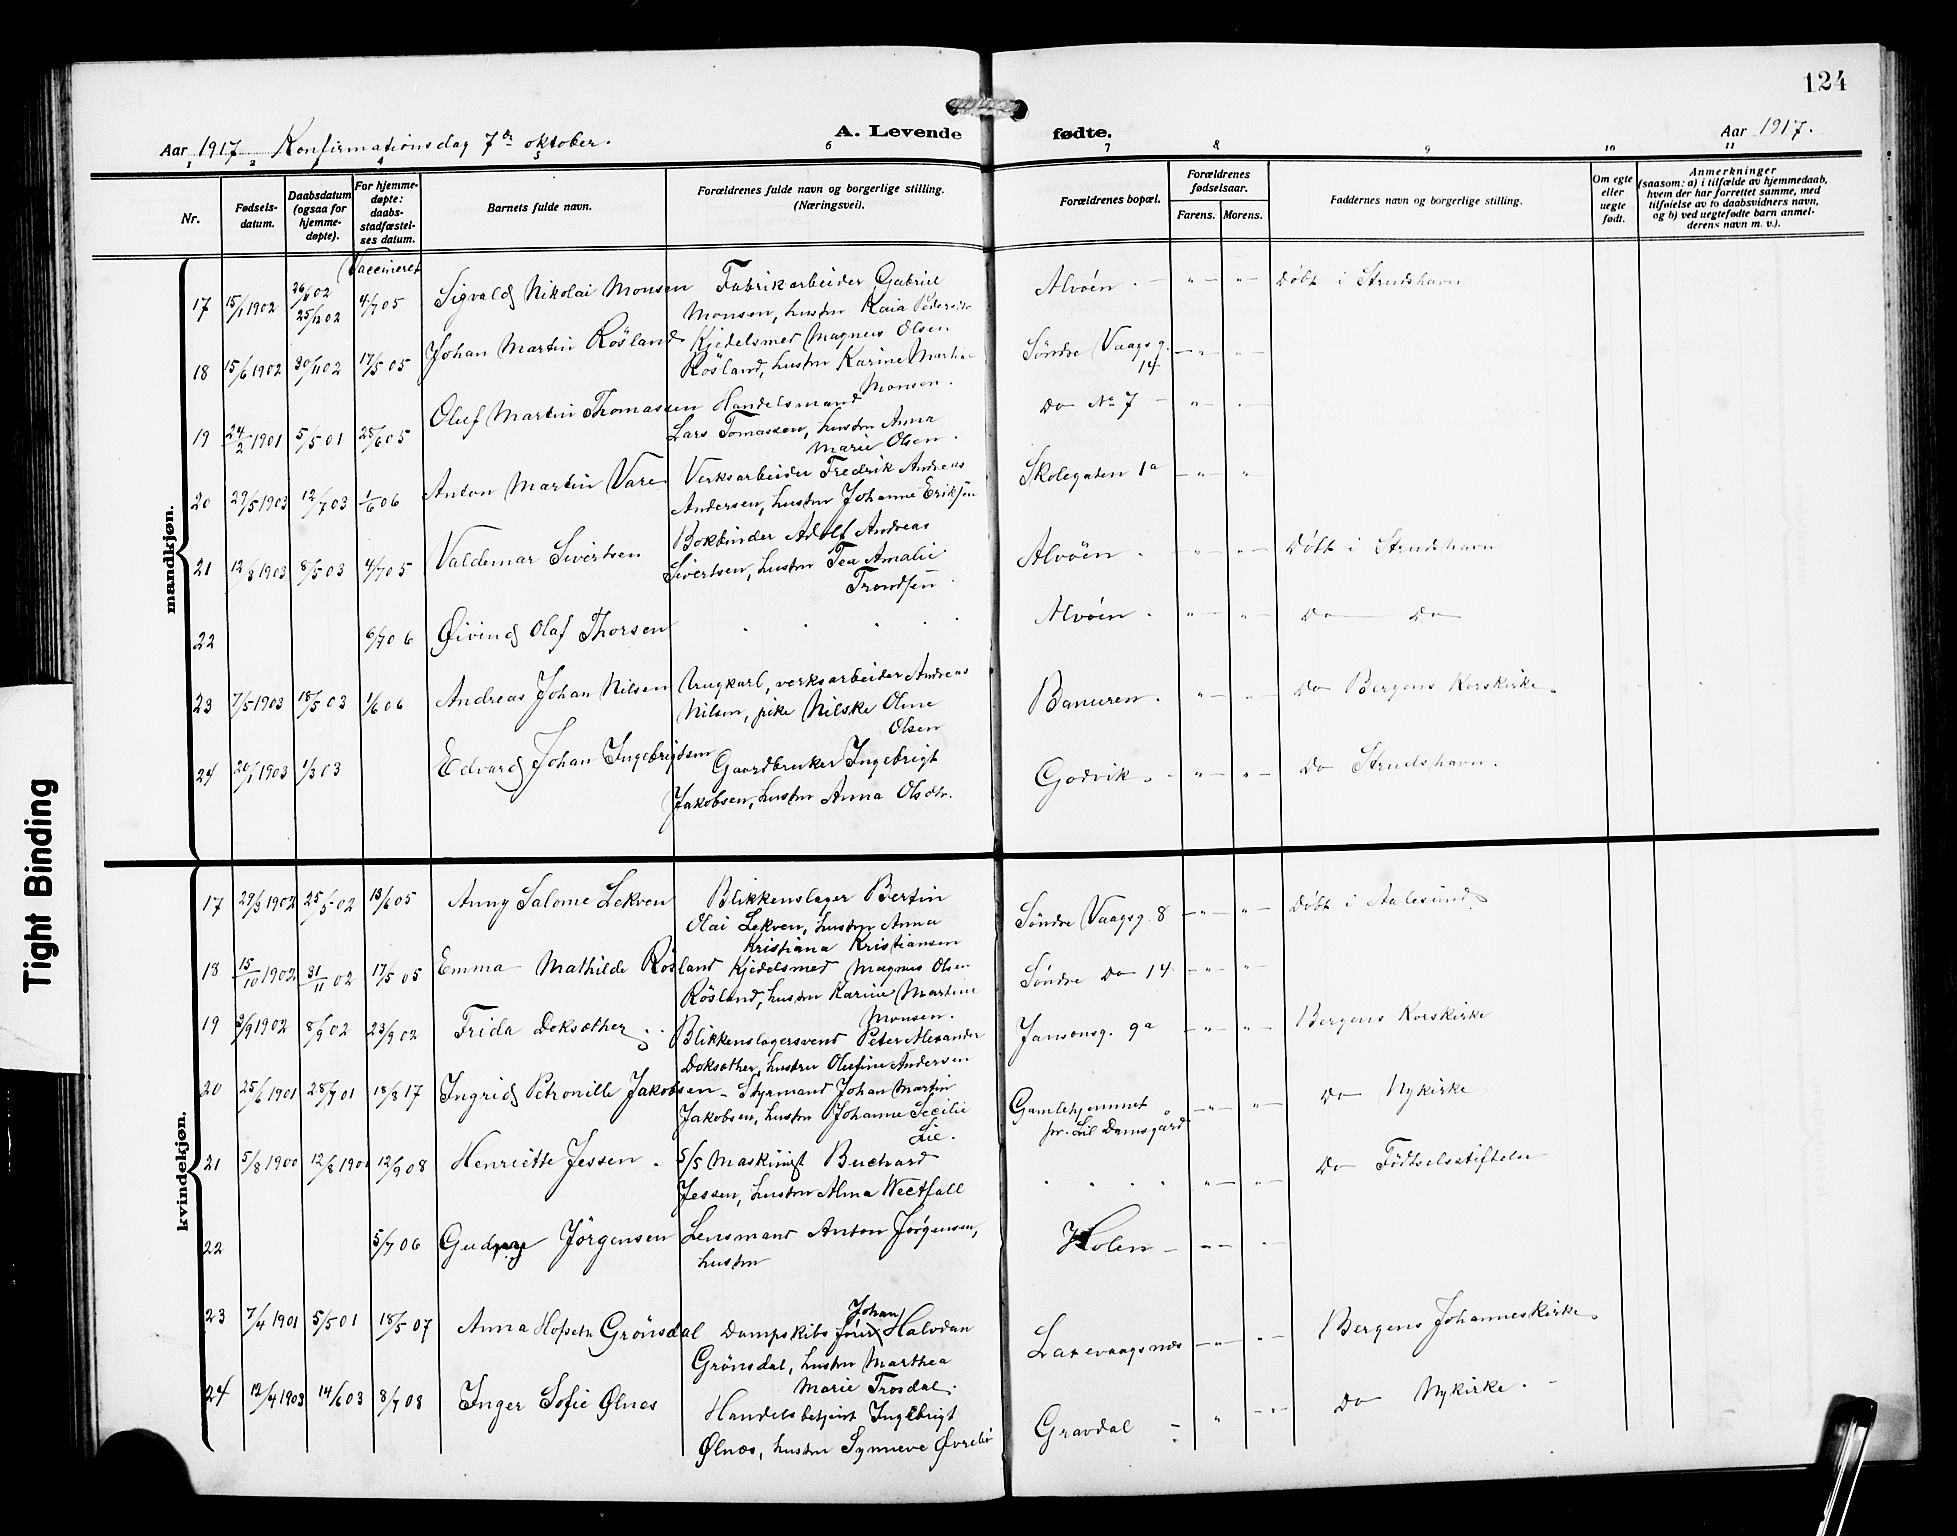 124
Aar 1917 Konfirmationsdag 7de oktober.
A. Levende fødte.
Aar 1917.
1 2 3 4 5 6 7 8 9 10 11
Nr.
Fødsels-datum.
Daabsdatum (ogsaa for hjemme-døpte).
For hjemme-døpte: daabs-stadfæstel-ses datum.
Barnets fulde navn.
Forældrenes fulde navn og borgerlige stilling. (Næringsvei).
Forældrenes bopæl.
Forældrenes fødselsaar.
Farens. Morens.
Faddernes navn og borgerlige stilling.
Om egte eller uegte født.
Anmerkninger (saasom: a) i tilfælde av hjemmedaab, hvem der har forrettet samme, med tilføielse av to daabsvidners navn, og b) ved uegtefødte barn anmel-derens navn m. v.).
mandkjøn.
(Vaccineret
17 15/1 1902 25/12 02 4/7 05 Sigvald Nikolai Monsen Fabrikarbeider Gabriel Alvöen. – „ – „ – Döbt i Strudshavn
Monsen, hustru Kaia Pedersdtr
18 15/6 1902 30/11 02 17/5 05 Johan Martin Rösland Kjedelsmed Magnus Olsen Söndre Vaagsg. 14 – „ – „ –
Rösland, hustru Karine Martine
Monsen.
19 24/2 1901 5/5 01 28/6 05 Oluf Martin Thomassen Handelsmand Do No 7 – „ – „ –
Lars Tomassen, hustru Anna
Marie Olsen.
20 29/5 1903 12/7 03 1/6 06 Anton Martin Vare Verksarbeider Fredrik Andreas Skolegaten 1a – „ – „ –
Andersen, hustru Johanne Eriksen
21 12/3 1903 8/5 03 4/7 05 Valdemar Sivertsen Bokbinder Adolf Andreas Alvöen. – „ – „ – Döbt i Strudshavn
Sivertsen, hustru Tea Amalie
Trondsen
22 6/7 06 Øivind Olaf Thorsen . . . . Alvöen. – „ – „ – Do Do
23 7/5 1903 18/5 03 1/6 06 Andreas Johan Nilsen Ungkarl, verksarbeider Andreas Banuren. – „ – „ – Do Bergens Korskirke.
Nilsen, pike Nilske Oline
Olsen
24 20/1 1903 1/3 03 Edvard Johan Ingebrigtsen Gaardbruker Ingebrigt Godvik. – „ – „ – Do Strudshavn.
Jakobsen, hustru Anna Olsdtr.
kvindekjøn.
17 29/3 1902 25/5 02 13/6 05 Anny Salome Lekven Blikkenslager Bertin Söndre Vaagsg. 8 – „ – „ – Döbt i Aalesund
Olai Lekven, hustru Anna
Kristiana Kristiansen
18 15/10 1902 31/11 02 17/5 05 Emma Mathilde Rösland Kjedelsmed Magnus Olsen Söndre Do 14 – „ – „ –
Rösland, hustru Karine Martine
Monsen.
19 3/9 1902 8/9 02 23/9 02 Frida Doksæther . . Blikkenslagersvend Peter Alexander Jansonsg. 9a – „ – „ – Bergens Korskirke
Doksæther, hustru Olufine Andersen
20 25/6 1901 28/7 01 18/8 17 Ingrid Petronille Jakobsen – Styrmand Johan Martin Gamlehjemmet – „ – „ – Do Nykirke
Jakobsen, hustru Johanne Secilie pr. Lil Damsgård
Lie.
21 5/8 1900 12/8 190 12/9 08 Henriette Jessen. S/S Maskinist Buchard . . . . – „ – „ – Do Födtselsstiftelse
Jessen, hustru Alma Westfall
22 5/7 06 Gudny Jörgensen Lensmand Anton Jörgensen, Holen – „ – „ –
hustru
23 7/4 1901 5/5 01 18/5 07 Anna Hopseth Grönsdal Dampskibsfører Johan Halvdan Laxevaagsnes – „ – „ – Bergens Johanneskirke.
Grönsdal, hustru Marthea
Marie Trosdal.
24 12/4 1903 14/6 03 8/7 08 Inger Sofie Ølnes Handelsbetjent Ingebrigt Gravdal – „ – „ – Do Nykirke. –
Ølnæs, hustru Synneve Övrebö
Tight Binding